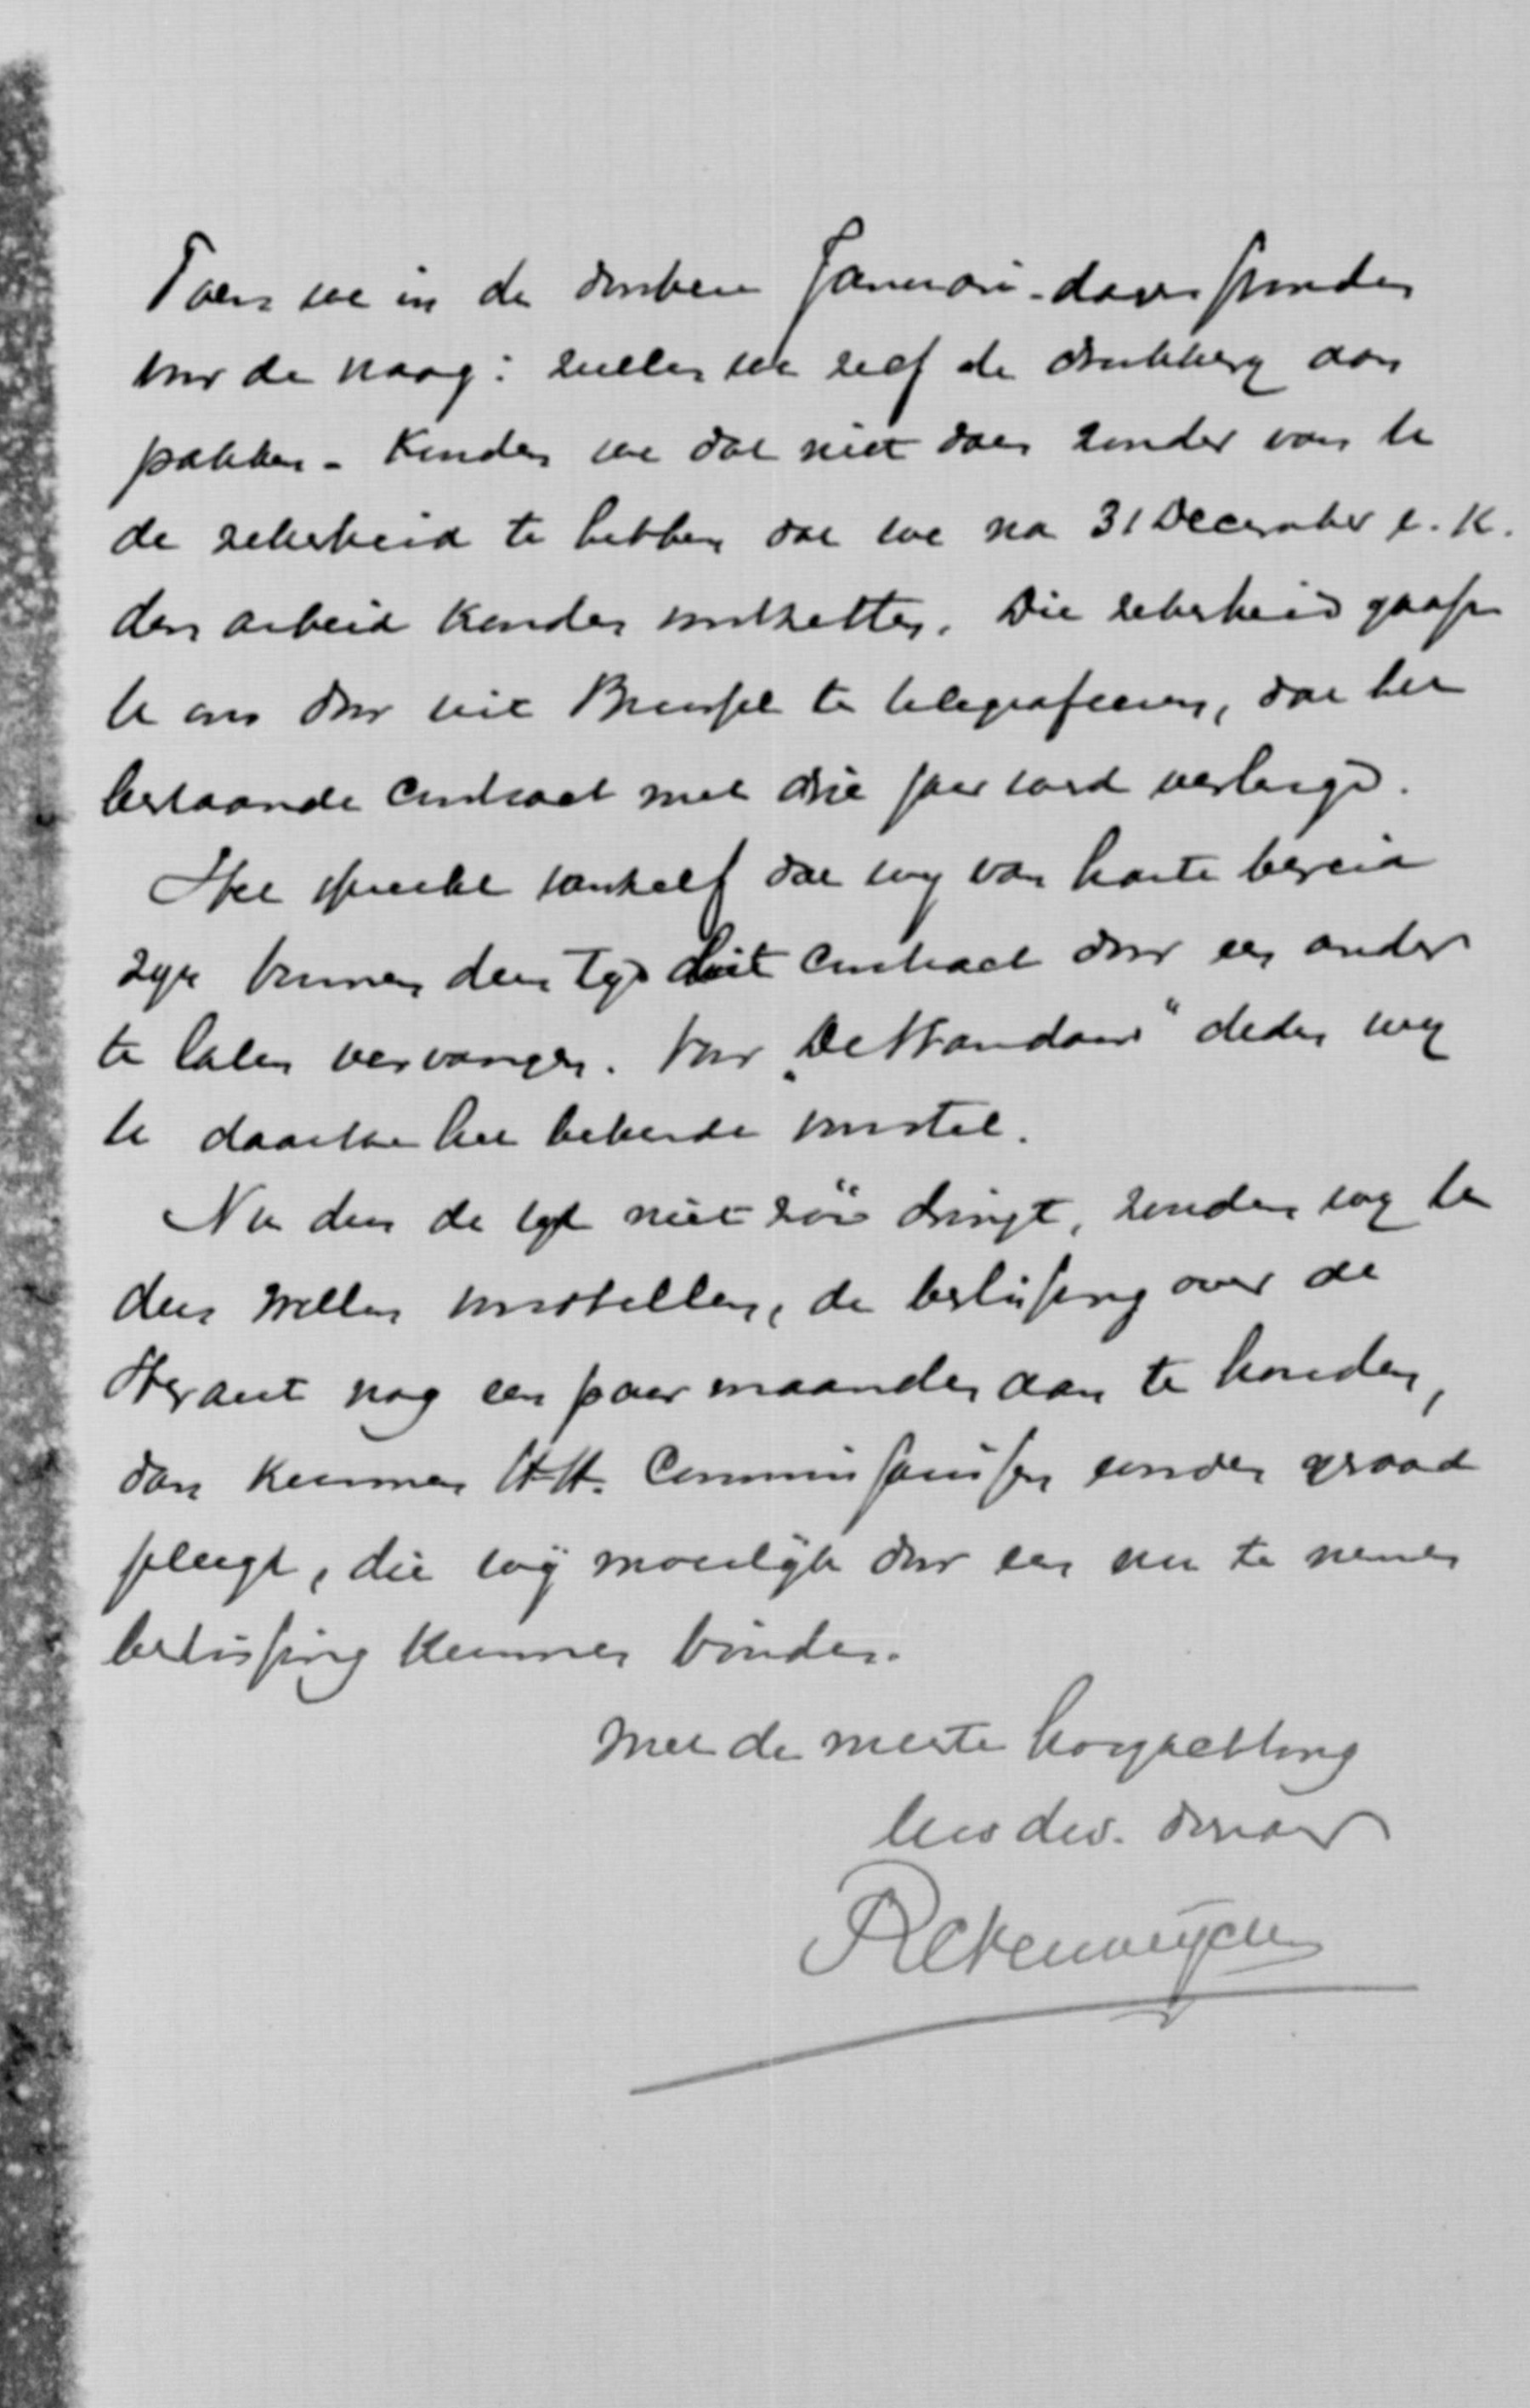 Toen we in de donkere Januari-dagen stonden
voor de vraag: zullen we zelf de drukkerij aan
pakken - konden we dat niet doen zonder van U
de zekerheid te hebben dat we na 31 December e.k.
den arbeid konden voortzetten. Die zekerheid gaaft
U ons door uit Brussel te telegrafeeren, dat het
bestaande contract met drie jaar werd verlengd.
Het spreekt vanzelf dat wij van harte bereid
zijn binnen den tijd dit contract door een ander
te laten vervangen. Voor „De Standaard" deden wij
U daartoe het bekende voorstel.
Nu dan de tijd niet zóó dringt, zouden wij U
dus willen voorstellen, de beslissing over de
Heraut nog een paar maanden aan te houden,
dan kunnen H.H. Commissarissen worden geraad
pleegd, die wij moeilijk door een nu te nemen
beslissing kunnen binden.
Met de meeste hoogachting
Uw dw. dienaar